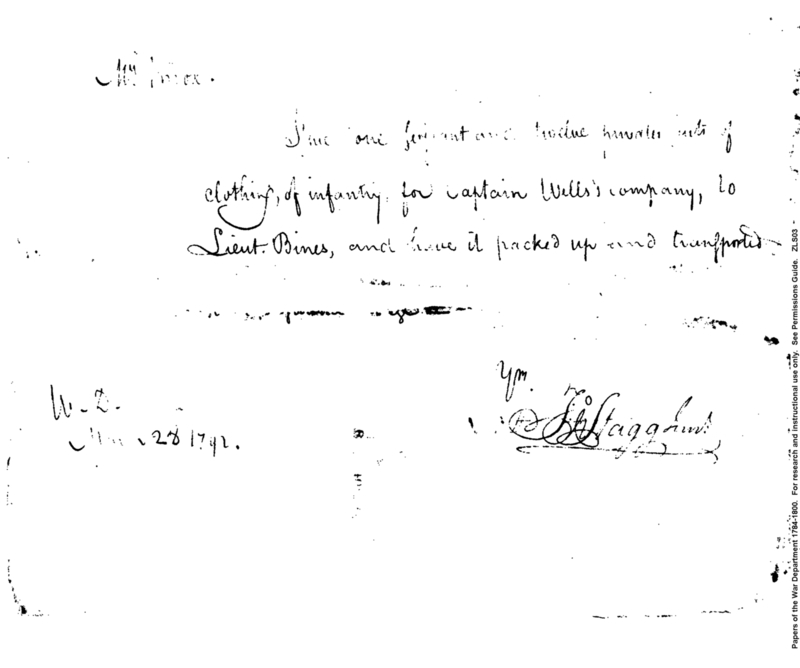 Mr
one serjeant and twelve privates suits of
clothing, of infantry, for captain Wells's company, to
Lieut. Bines, and have it packed up and transported
W. D.
28 1792.
Stagg Junr.
Papers of the War Department 1784-1800. For research and instructional use only. See Permissions Guide. ZLS03 -